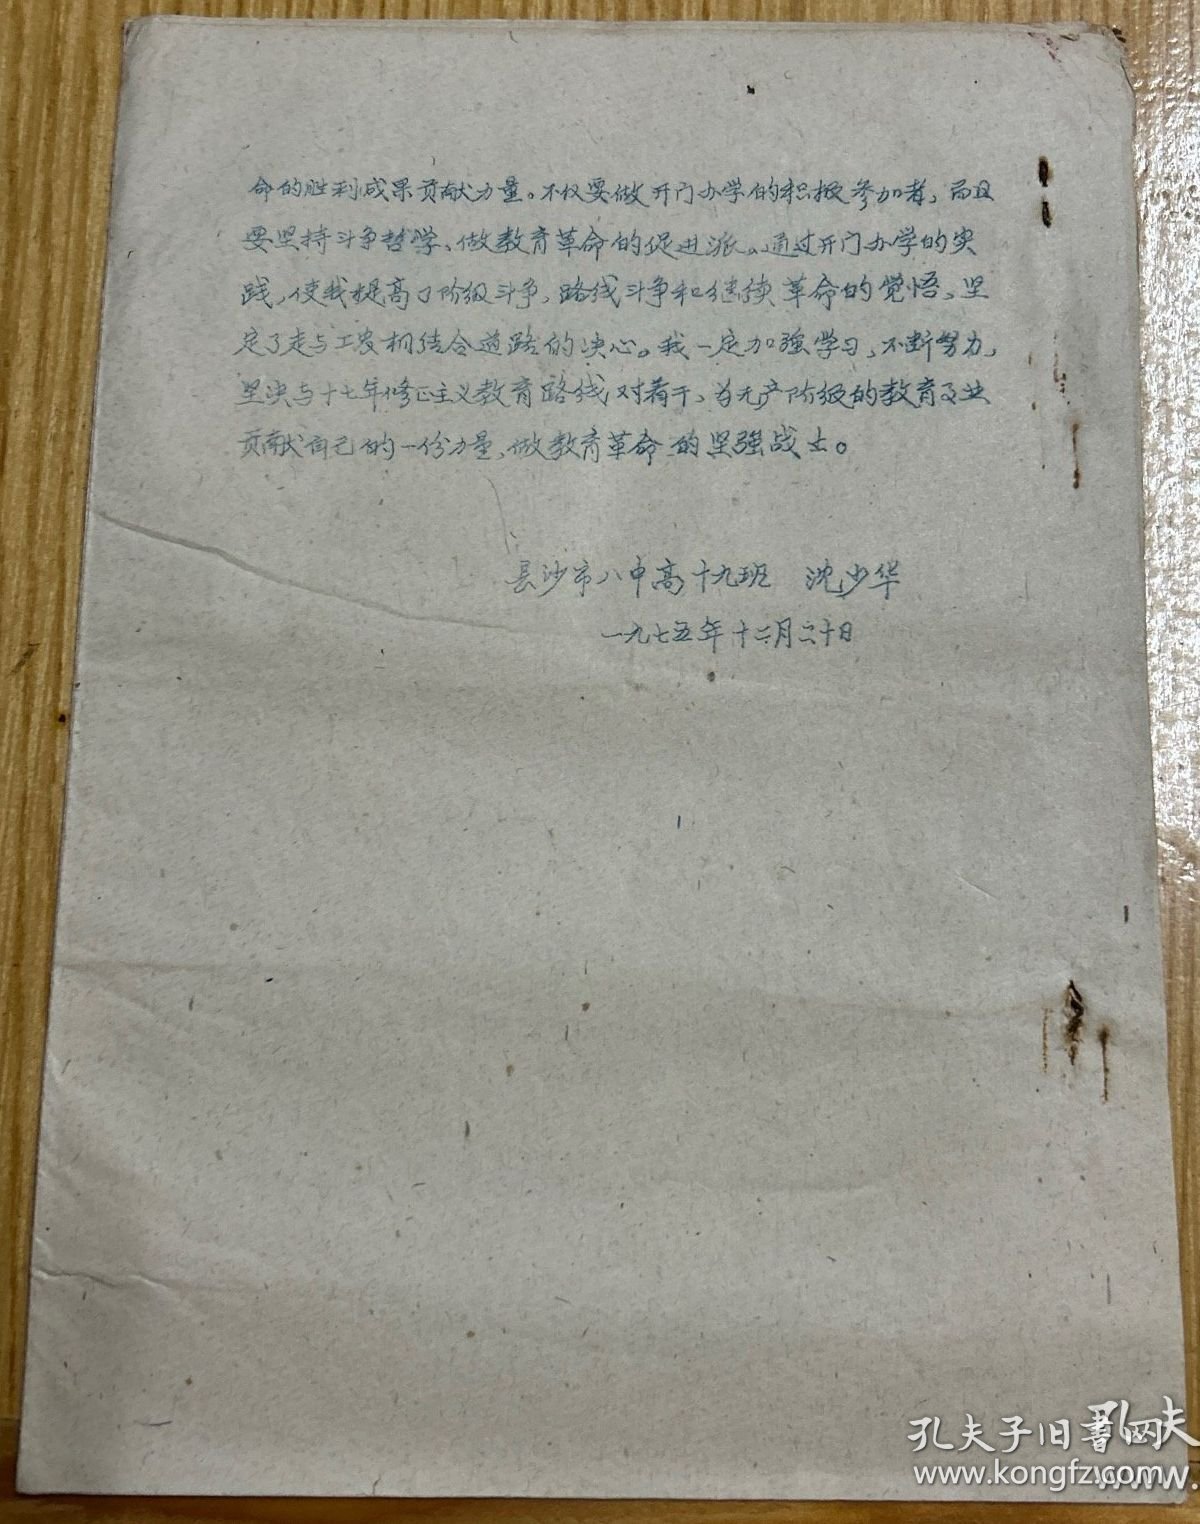 命的胜利成果贡献力量。不仅要做开门办学的积极参加者，而且
要坚持斗争哲学、做教育革命的促进派。通过开门办学的实
践，使我提高了阶级斗争，路线斗争和继续革命的觉悟，坚
定了走与工农相结合道路的决心。我一定加强学习，不断努力，
坚决与十七年修正主义教育路线对着干，为无产阶级的教育事业
贡献自己的一份力量，做教育革命的坚强战士。
长沙市八中高十九班 沈少华
一九七五年十二月二十日
孔夫子旧书网
www.kongfz.com
孔夫
www.